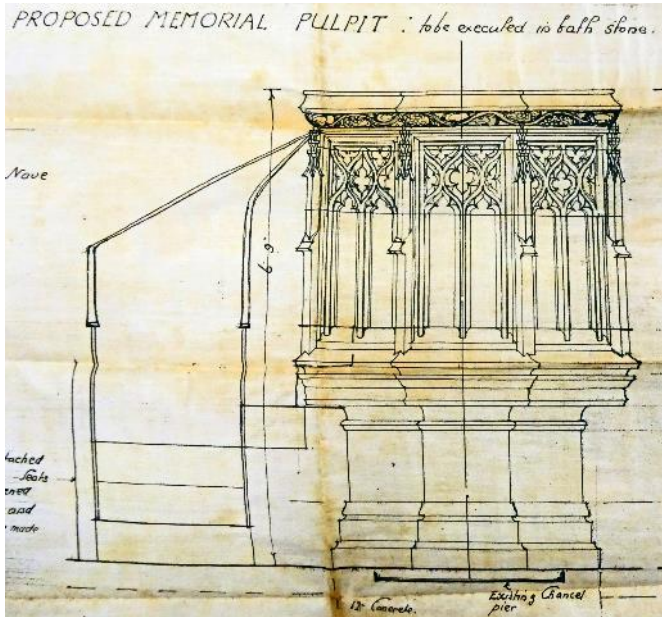 PROPOSED MEMORIAL PULPIT : to be executed in bath stone.
Nave
6'. 9"
tached
Seats
ened
and
made
12" Concrete.
Existing Chancel
pier